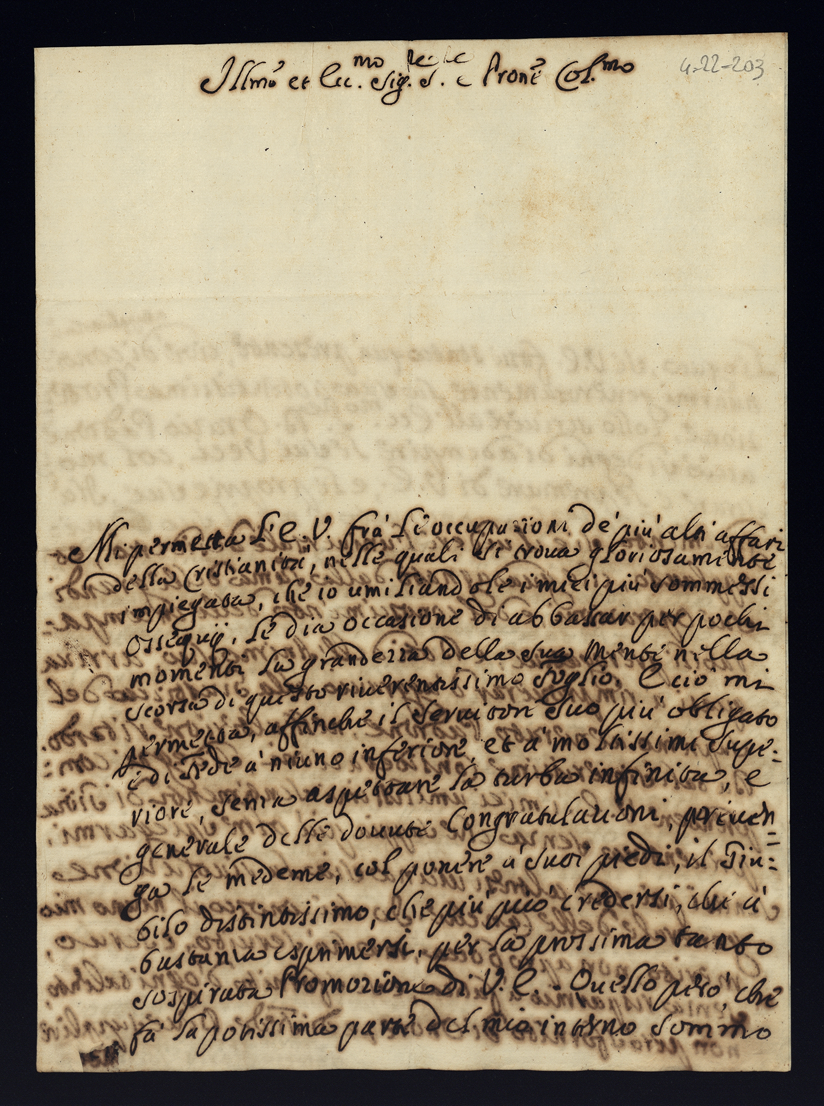 Illmo et Ecc.mo Sig. S. e Prone Col.mo
4-22-203
Mi permetta L'E.V. frà le occupazioni de' più alti affari
della Cristianità, nelle quali si trova gloriosamente
impiegata, che io umiliandole i miei più sommessi
ossequij, le dia occasione di abbassar per pochi
momenti la grandezza della sua Mente nella
scorsa di questo riverentissimo foglio. E ciò mi
permetta, affinche il Servitore Suo più obligato
e di fede à niuno inferiore, et à moltissimi supe-
riore, senza aspettare la turba infinita, e
generale delle dovute Congratulazioni, preven=
ga le medeme, col ponere a' suoi piedi, il Giu-
bilo distintissimo, che più può credersi, che à
bastanza esprimersi, per la prossima tanto
sospirata Promozione di V.E. Quello però, che
fà la potissima parte del mio interno sommo